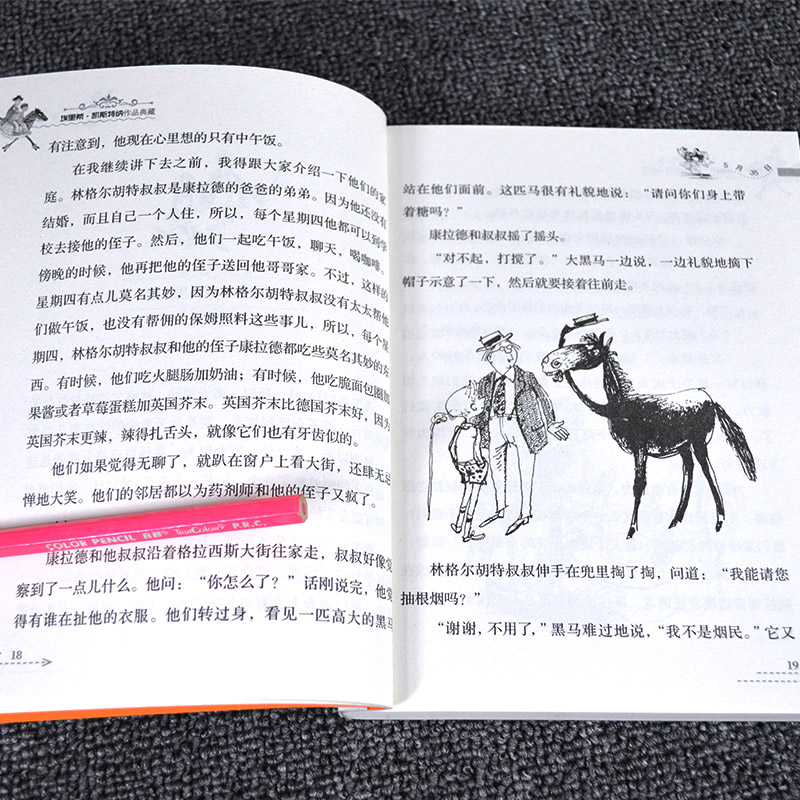 埃里希·凯斯特纳作品典藏
有注意到，他现在心里想的只有中午饭。
在我继续讲下去之前，我得跟大家介绍一下他们的家
庭。林格尔胡特叔叔是康拉德的爸爸的弟弟。因为他还没有
结婚，而且自己一个人住，所以，每个星期四他都可以到学
校去接他的侄子。然后，他们一起吃午饭，聊天，喝咖啡。
傍晚的时候，他再把他的侄子送回他哥哥家。不过，这样的
星期四有点儿莫名其妙，因为林格尔胡特叔叔没有太太帮他
们做午饭，也没有帮佣的保姆照料这些事儿，所以，每个星
期四，林格尔胡特叔叔和他的侄子康拉德都吃些莫名其妙的东
西。有时候，他们吃火腿肠加奶油；有时候，他吃脆面包圈加
果酱或者草莓蛋糕加英国芥末。英国芥末比德国芥末好，因为
英国芥末更辣，辣得扎舌头，就像它们也有牙齿似的。
他们如果觉得无聊了，就趴在窗户上看大街，还肆无忌
惮地大笑。他们的邻居都以为药剂师和他的侄子又疯了。
COLOR PENCIL 真彩 TrueColor P.R.C.
康拉德和他叔叔沿着格拉西斯大街往家走，叔叔好像觉
察到了一点儿什么。他问：“你怎么了？”话刚说完，他觉
得有谁在扯他的衣服。他们转过身，看见一匹高大的黑马
18
5月35日
站在他们面前。这匹马很有礼貌地说：“请问你们身上带
着糖吗？”
康拉德和叔叔摇了摇头。
“对不起，打搅了。”大黑马一边说，一边礼貌地摘下
帽子示意了一下，然后就要接着往前走。
林格尔胡特叔叔伸手在兜里掏了掏，问道：“我能请您
抽根烟吗？”
“谢谢，不用了，”黑马难过地说，“我不是烟民。”它又
19